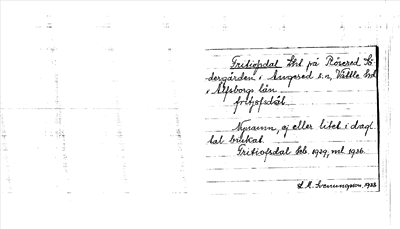 Fritiofsdal Lht på Rösered Sö-
dergården i Angered s:n, Vättle hd
i Älfsborgs län.
fritjofsdal.
Nynamn, ej eller litet i dagl.
tal brukat.
Fritiofsdal Geb. 1929, ml 1936.
1933